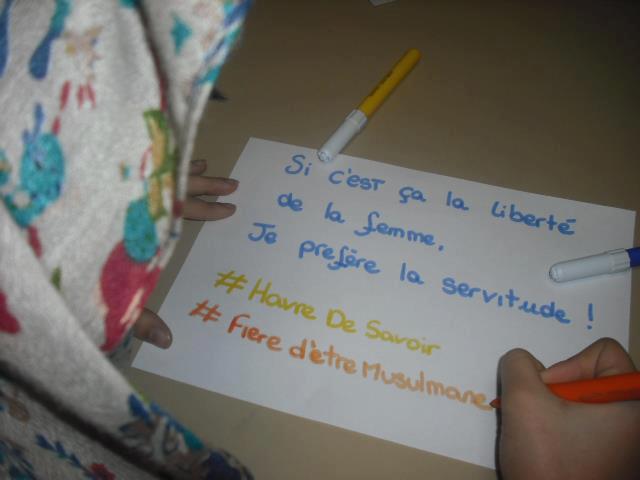 Si c'est ça la liberté
de la femme,
Je prefère la servitude !
# Havre De Savoir
# Fiere d'être Musulmane